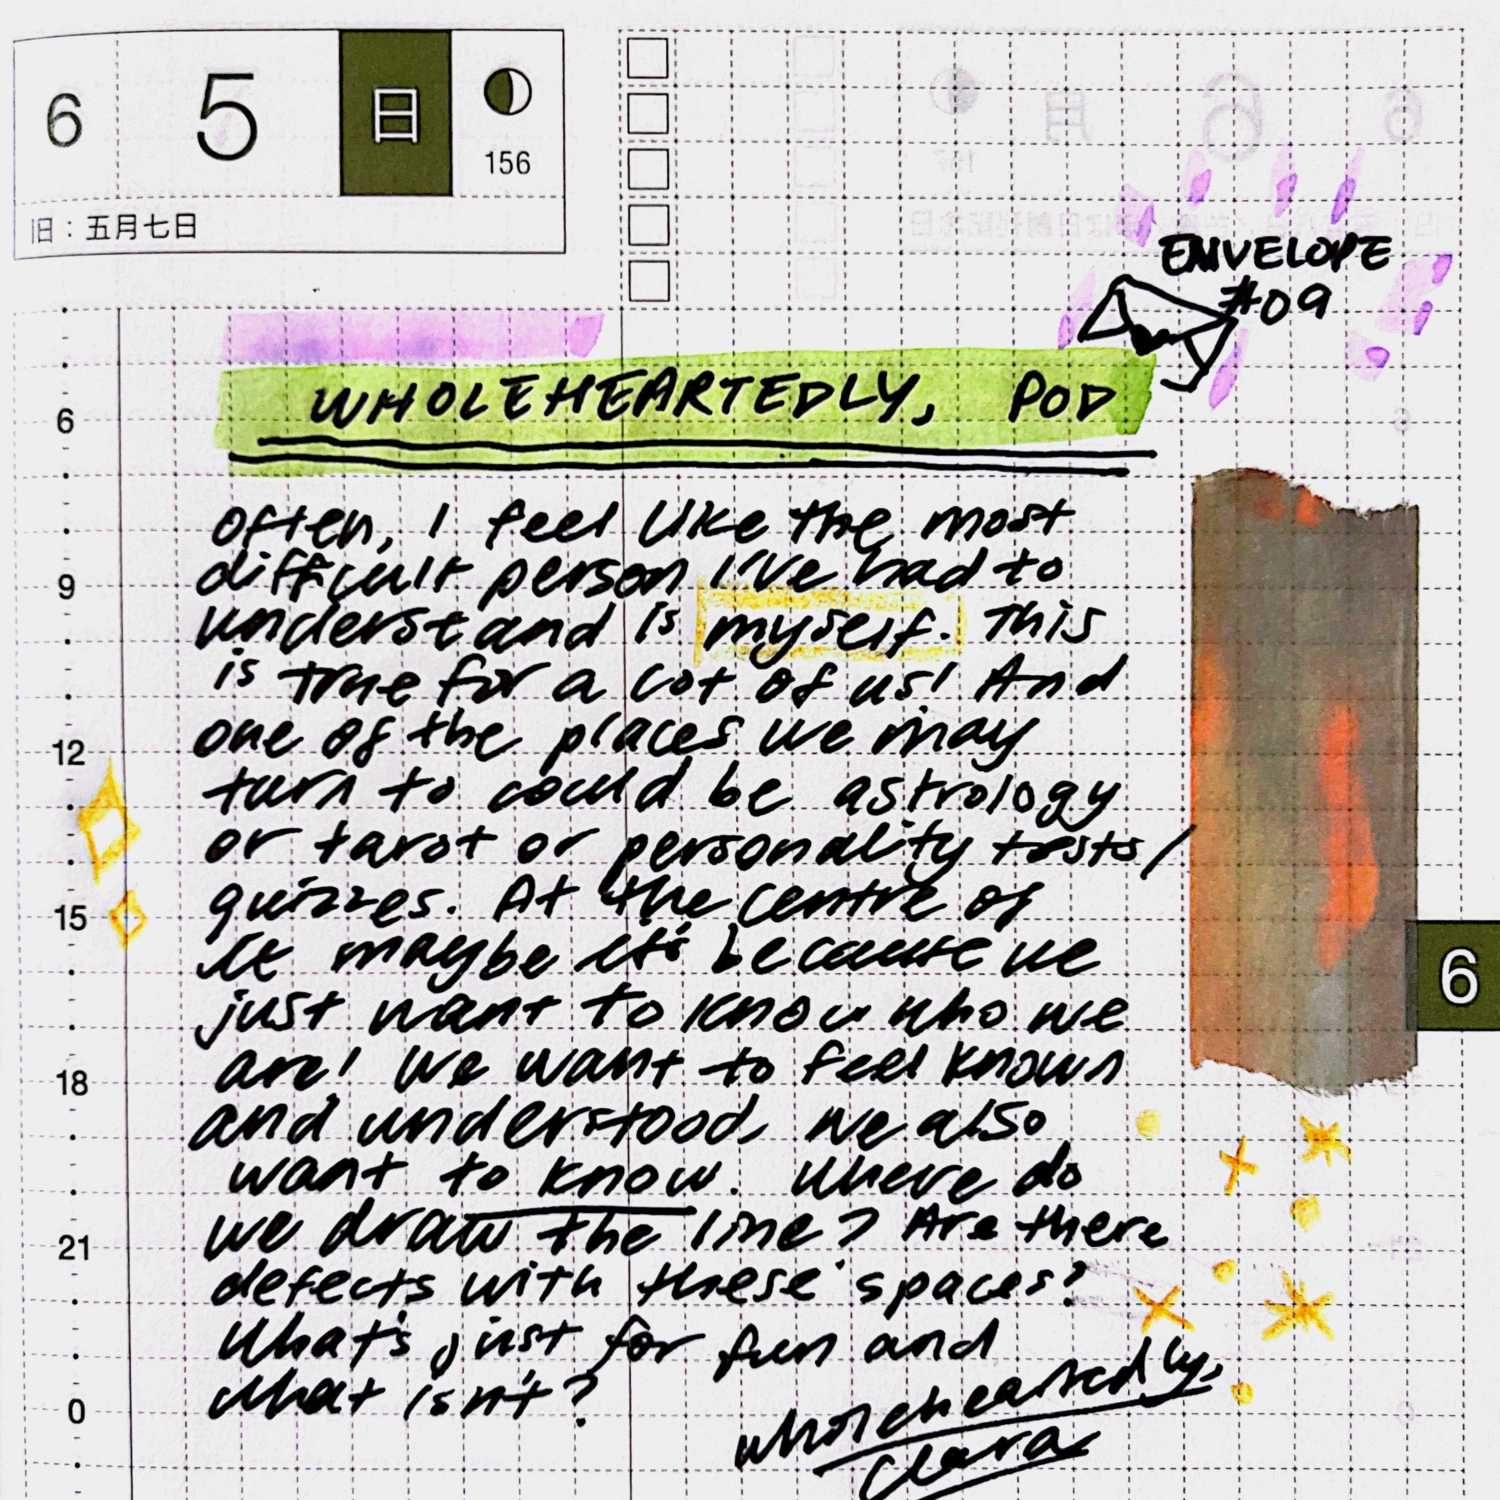 6 5 日
156
旧：五月七日
ENVELOPE
#09
WHOLEHEARTEDLY, POD
6
9
12
15
18
21
0
often, I feel like the most
difficult person I've had to
understand is myself. This
is true for a lot of us! And
one of the places we may
turn to could be astrology
or tarot or personality tests/
quizzes. At the centre of
it maybe it's because we
just want to know who we
are! We want to feel known
and understood, we also
want to know. Where do
we draw the line? Are there
defects with these spaces?
What's just for fun and
what isn't?
wholeheartedly,
Clara
6